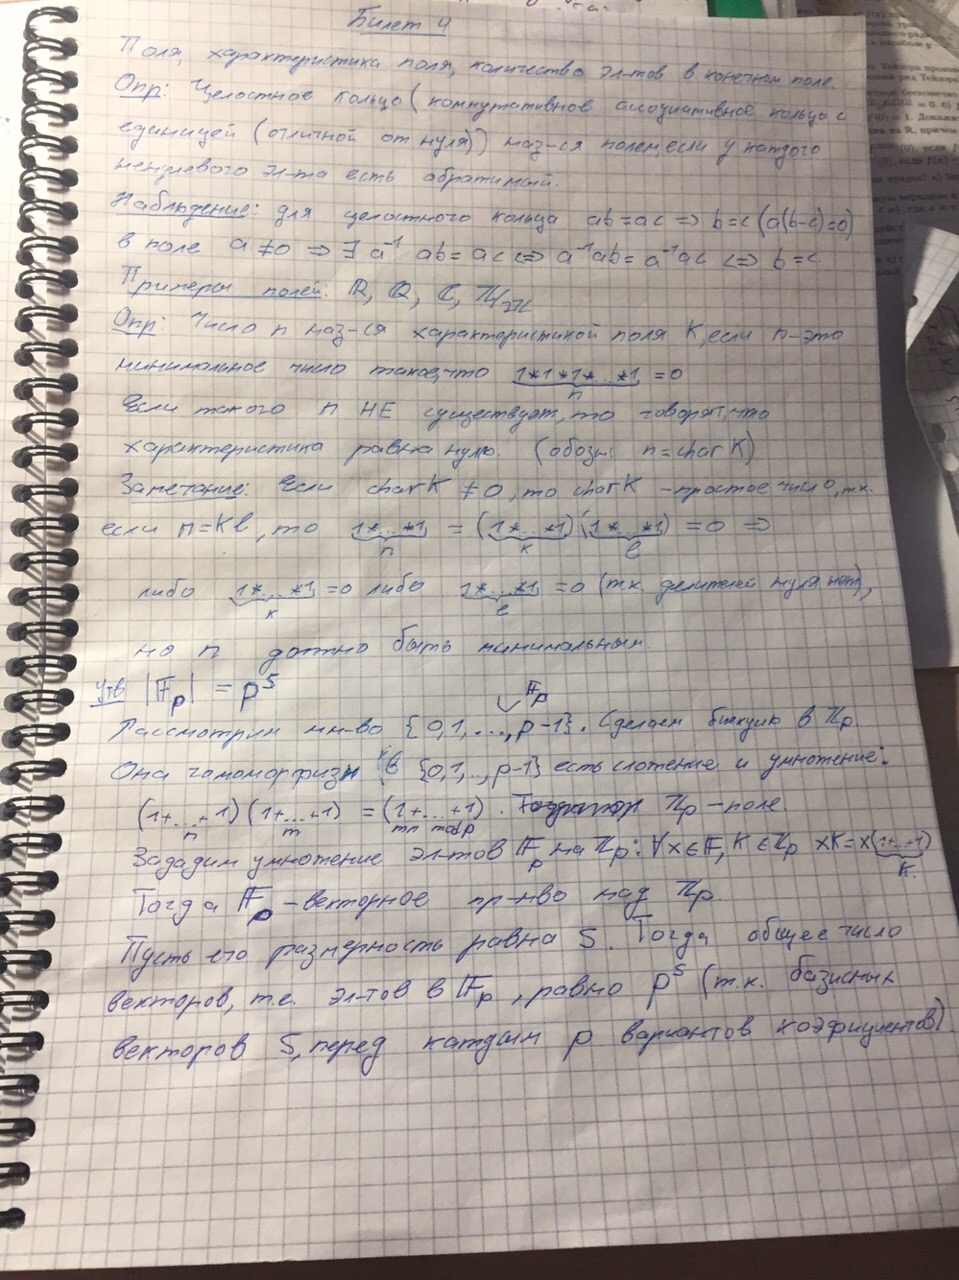 Билет 4
Поля, характеристика поля, количество эл-тов в конечном поле.
Опр: Целостное кольцо (коммутативное ассоциативное кольцо с
единицей (отличной от нуля)) наз-ся полем, если у каждого
ненулевого эл-та есть обратимый.
Наблюдение: для целостного кольца ab=ac => b=c (a(b-c)=0)
в поле a≠0 => ∃ a⁻¹ ab=ac <=> a⁻¹ab=a⁻¹ac <=> b=c.
Примеры полей: ℝ, ℚ, ℂ,
Опр: Число n наз-ся характеристикой поля K, если n-это
минимальное число такое, что 1*1*1*...*1 = 0
n
Если такого n НЕ существует, то говорят, что
характеристика равна нулю. (обозн: n=char K)
Замечание: Если char K ≠ 0, то char K - простое число, т.к.
если n=Kl, то 1*...*1 = (1*...*1) (1*...*1) = 0 =>
n k l
либо 1*...*1 = 0 либо 1*...*1 = 0 (т.к. делителей нуля нет),
k l
но n должно быть минимальным.
Утв |𝔽p| = pˢ
𝔽p
Рассмотрим мн-во {0,1,...,p-1}. Сделаем биекцию в ℤp.
Она гомоморфизм (в {0,1,..,p-1} есть сложение и умножение:
(1+...+1) (1+...+1) = (1+...+1). ℤp - поле.
n m mn mod p
Зададим умножение эл-тов 𝔽p на ℤp: ∀x∈𝔽, K∈ℤp xK=x(1+..+1)
K.
Тогда 𝔽p - векторное пр-нво над ℤp.
Пусть его размерность равна S. Тогда общее число
векторов, т.е. эл-тов в 𝔽p, равно pˢ (т.к. базисных
векторов S, перед каждым p вариантов коэфициентов)